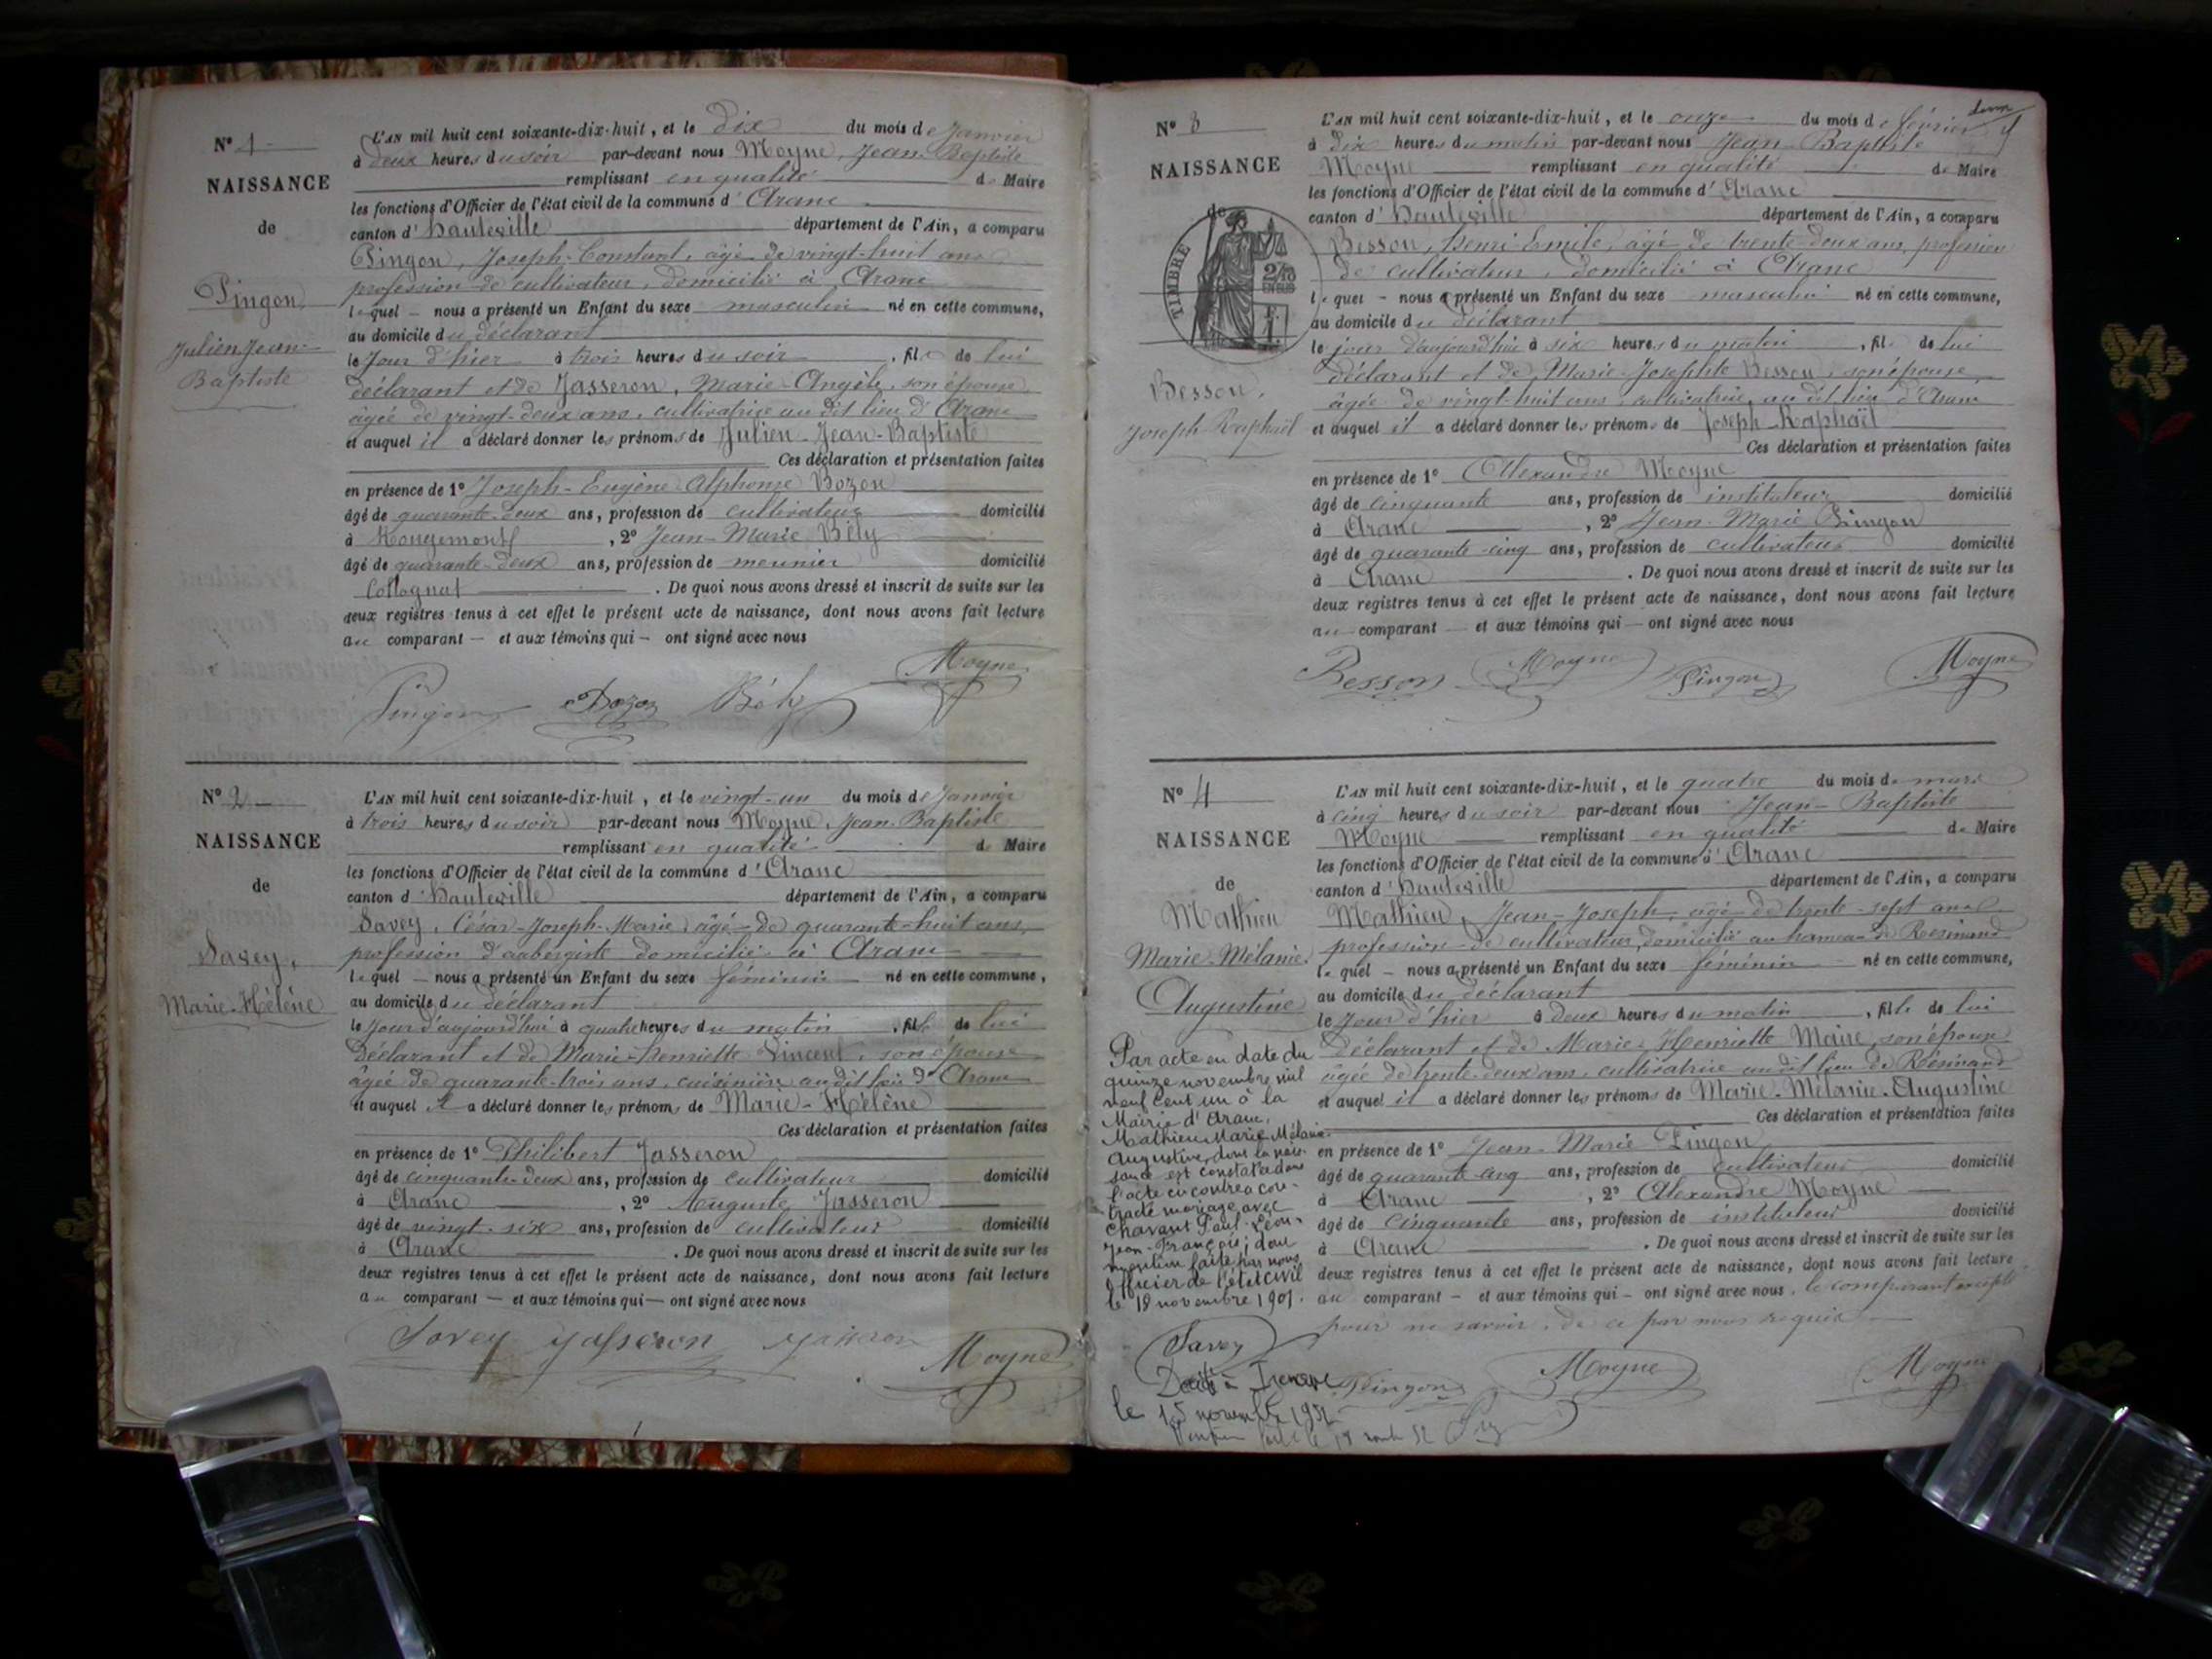 N° 1
NAISSANCE
de
Pingon
Julien Jean-
Baptiste
L'AN mil huit cent soixante-dix-huit, et le dix du mois de Janvier
à deux heures du soir par-devant nous Moyne, Jean-Baptiste
remplissant en qualité de Maire
les fonctions d'Officier de l'état civil de la commune d'Aranc
canton d'Hauteville département de l'Ain, a comparu
Pingon, Joseph-Constant, âgé de vingt-huit ans
profession de cultivateur, domicilié à Aranc
lequel - nous a présenté un Enfant du sexe masculin né en cette commune,
au domicile du déclarant
le Jour d'hier à trois heures du soir, fils de lui
déclarant et de Jasseron, Marie-Angèle, son épouse
âgée de vingt-deux ans, cultivatrice au dit lieu d'Aranc
et auquel il a déclaré donner les prénoms de Julien-Jean-Baptiste
Ces déclaration et présentation faites
en présence de 1° Joseph-Eugène Alphonse Bozon
âgé de quarante-deux ans, profession de cultivateur domicilié
à Rougemont, 2° Jean-Marie Bély
âgé de quarante-deux ans, profession de meunier domicilié
Collognat. De quoi nous avons dressé et inscrit de suite sur les
deux registres tenus à cet effet le présent acte de naissance, dont nous avons fait lecture
au comparant — et aux témoins qui — ont signé avec nous
Moyne
Pingon Bozon Bély
N° 2
NAISSANCE
de
Savey,
Marie-Hélène
L'AN mil huit cent soixante-dix-huit, et le vingt-un du mois de Janvier
à trois heures du soir par-devant nous Moyne, Jean-Baptiste
remplissant en qualité de Maire
les fonctions d'Officier de l'état civil de la commune d'Aranc
canton d'Hauteville département de l'Ain, a comparu
Savey, César-Joseph-Marie, âgé de quarante-huit ans,
profession d'aubergiste domicilié à Aranc
lequel - nous a présenté un Enfant du sexe féminin né en cette commune,
au domicile du déclarant
le Jour d'aujourd'hui à quatre heures du matin, fille de lui
Déclarant et de Marie-Henriette Vincent, son épouse
âgée de quarante-trois ans, cuisinière au dit lieu d'Aranc
et auquel il a déclaré donner les prénoms de Marie-Hélène
Ces déclaration et présentation faites
en présence de 1° Philibert Jasseron
âgé de cinquante-deux ans, profession de cultivateur domicilié
à Aranc, 2° Auguste Jasseron
âgé de vingt-six ans, profession de cultivateur domicilié
à Aranc. De quoi nous avons dressé et inscrit de suite sur les
deux registres tenus à cet effet le présent acte de naissance, dont nous avons fait lecture
au comparant — et aux témoins qui — ont signé avec nous
Savey Jasseron Jasseron Moyne
N° 3
NAISSANCE
de
TIMBRE
2/10
EN SUS
Besson,
Joseph Raphaël
L'AN mil huit cent soixante-dix-huit, et le onze du mois de février
à dix heures du matin par-devant nous Jean-Baptiste
Moyne remplissant en qualité de Maire
les fonctions d'Officier de l'état civil de la commune d'Aranc
canton d'Hauteville département de l'Ain, a comparu
Besson, Henri-Emile, âgé de trente-deux ans, profession
de cultivateur, domicilié à Aranc
lequel - nous a présenté un Enfant du sexe masculin né en cette commune,
au domicile du déclarant
le jour d'aujourd'hui à six heures du matin, fils de lui
déclarant et de Marie-Josephte Besson, son épouse,
âgée de vingt-huit ans, cultivatrice au dit lieu d'Aranc
et auquel il a déclaré donner les prénoms de Joseph-Raphaël
Ces déclaration et présentation faites
en présence de 1° Alexandre Moyne
âgé de cinquante ans, profession de instituteur domicilié
à Aranc, 2° Jean-Marie Pingon
âgé de quarante-cinq ans, profession de cultivateur domicilié
à Aranc. De quoi nous avons dressé et inscrit de suite sur les
deux registres tenus à cet effet le présent acte de naissance, dont nous avons fait lecture
au comparant — et aux témoins qui — ont signé avec nous
Besson Moyne Pingon Moyne
N° 4
NAISSANCE
de
Mathieu
Marie-Mélanie
Augustine
Par acte en date du
quinze novembre mil
neuf cent un à la
Mairie d'Aranc,
Mathieu Marie Mélanie
Augustine, dont la nais-
sance est constatée dans
l'acte ci contre a con-
tracté mariage avec
Chavant Paul Léon
Jean-François; dont
mention faite par nous
Officier de l'état civil
le 18 novembre 1901.
Savey
Décédée à
le 15 novembre 1952
L'AN mil huit cent soixante-dix-huit, et le quatre du mois de mars
à cinq heures du soir par-devant nous Jean-Baptiste
Moyne remplissant en qualité de Maire
les fonctions d'Officier de l'état civil de la commune d'Aranc
canton d'Hauteville département de l'Ain, a comparu
Mathieu, Jean-Joseph, âgé de trente-sept ans
profession de cultivateur domicilié au hameau de Résinand
lequel - nous a présenté un Enfant du sexe féminin né en cette commune,
au domicile du déclarant
le Jour d'hier à deux heures du matin, fille de lui
déclarant et de Marie-Henriette Maire, son épouse
âgée de trente-deux ans, cultivatrice au dit lieu de Résinand
et auquel il a déclaré donner les prénoms de Marie-Mélanie-Augustine
Ces déclaration et présentation faites
en présence de 1° Jean-Marie Pingon
âgé de quarante-cinq ans, profession de cultivateur domicilié
à Aranc, 2° Alexandre Moyne
âgé de cinquante ans, profession de instituteur domicilié
à Aranc. De quoi nous avons dressé et inscrit de suite sur les
deux registres tenus à cet effet le présent acte de naissance, dont nous avons fait lecture
au comparant - et aux témoins qui - ont signé avec nous, le comparant excepté
pour ne savoir, de ce par nous requis
Pingon Moyne Moyne